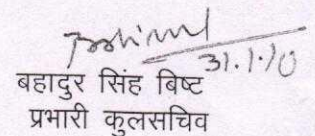 31.1.10
बहादुर सिंह बिष्ट
प्रभारी कुलसचिव